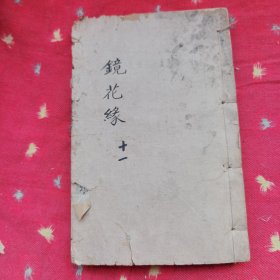 鏡花緣
十一